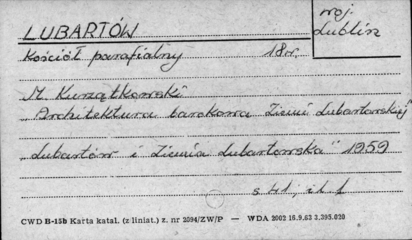 LUBARTÓW
woj. Lublin
Kościół parafialny 18 w.
M. Kurzątkowski
Architektura barokowa Ziemi Lubartowskiej
„Lubartów i Ziemia Lubartowska" 1959
s 41, il. 1
CWD B-15b Karta katal. (z liniat.) z. nr 2094/ZW/P — WDA 2002 16.9.63 3.395.020